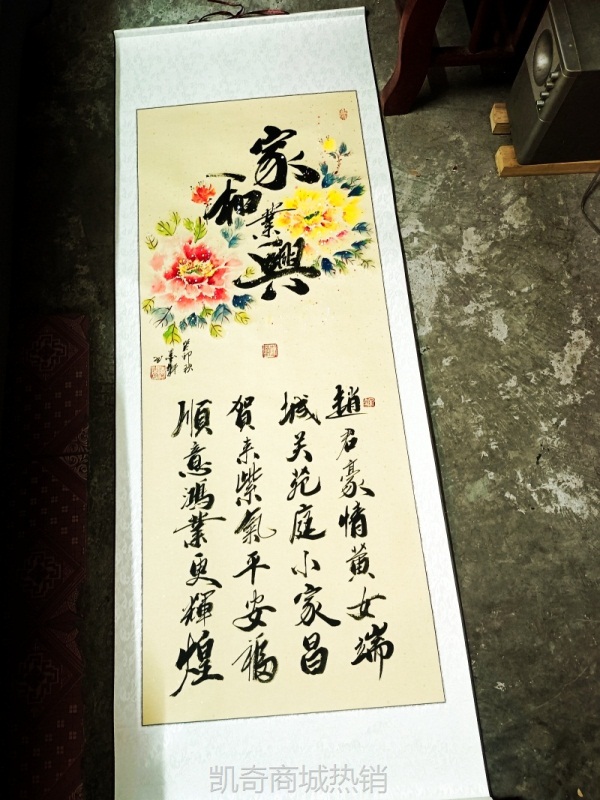 家和業興
癸卯秋
趙君豪情黄女端
城关苑庭小家昌
賀来紫氣平安福
順意鴻業更輝煌
凯奇商城热销